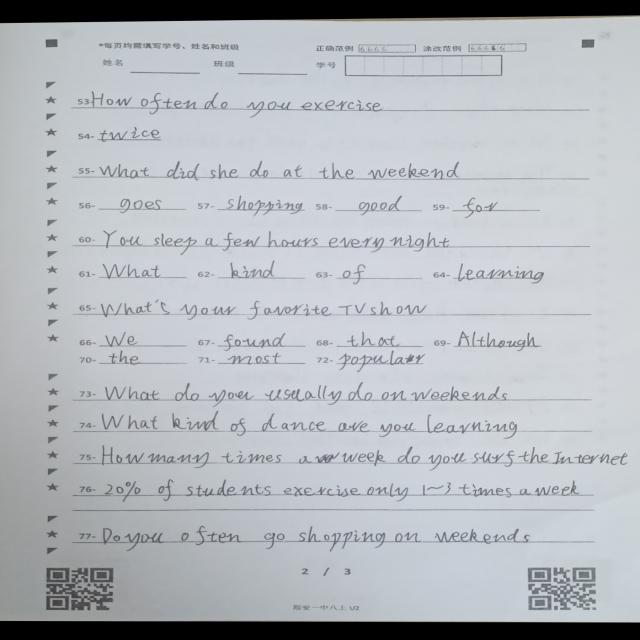 *每页均需填写学号、姓名和班级 正确范例 涂改范例
姓名 班级 学号
53- How often do you exercise
54- twice
55- What did she do at the weekend
56- goes 57- shopping 58- good 59- for
60- You sleep a few hours every night
61- What 62- kind 63- of 64- learning
65- What's your favorite TV show
66- We 67- found 68- that 69- Although
70- the 71- most 72- popular
73- What do you usually do on weekends
74- What kind of dance are you learning
75- How many times a week do you surf the Internet
76- 20% of students exercise only 1~3 times a week
77- Do you often go shopping on weekends
2 / 3
一中八上 U2